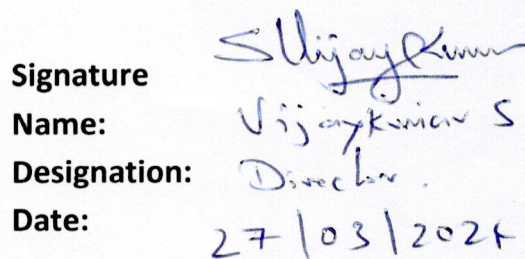 Signature SVijayKumar
Name: Vijaykumar S
Designation: Director.
Date: 27/03/2024